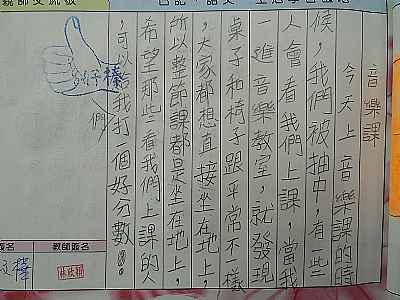 音樂課
今天上音樂課的時
候,我們被抽中,有一些
人會看我們上課,當我
一進音樂教室,就發現
桌子和椅子跟平常不一樣
,大家都想直接坐在地上,
所以整節課都是坐在地上,
希望那些看我們上課的人
可以給我們打一個好分數!!
好棒
簽名
教師簽名